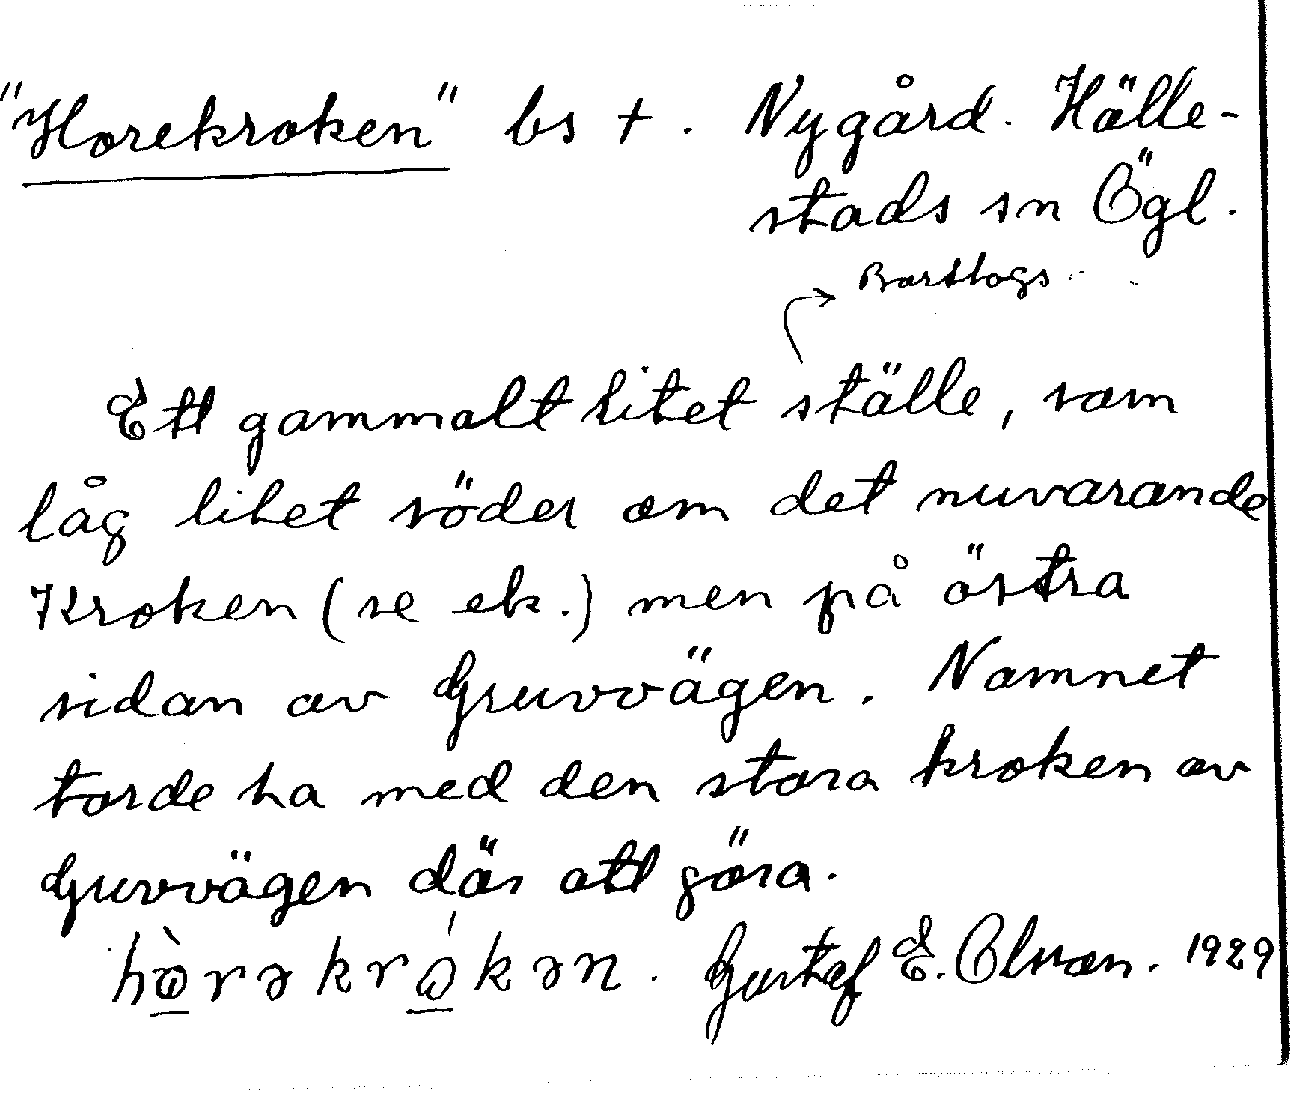 "Horekroken" bs +. Nygård. Hälle-
stads sn Ögl.
Bortlogs
Ett gammalt litet ställe, som
låg litet söder om det nuvarande
Kroken (se ek.) men på östra
sidan av Gruvvägen. Namnet
torde ha med den stora kroken av
Gruvvägen där att göra.
hòrəkrókən. Gustaf E. Olsson. 1929